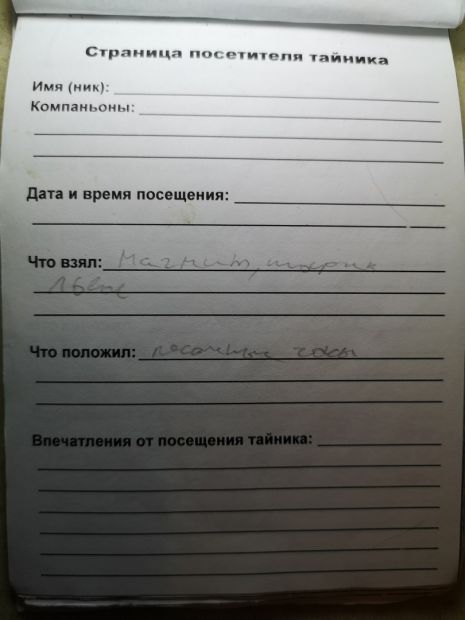 Страница посетителя тайника
Имя (ник):
Компаньоны:
Дата и время посещения:
Что взял: Магнит, шарик
Что положил: песочные часы
Впечатления от посещения тайника: